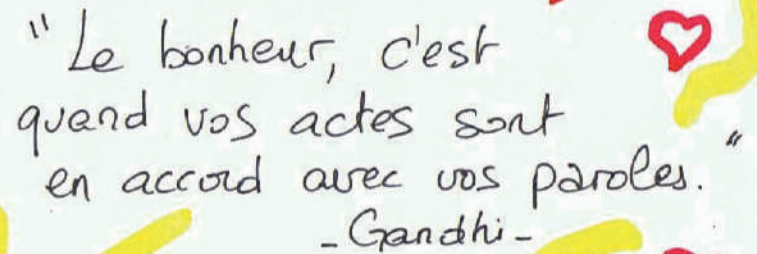 "Le bonheur, c'est
quand vos actes sont
en accord avec vos paroles."
-Gandhi-